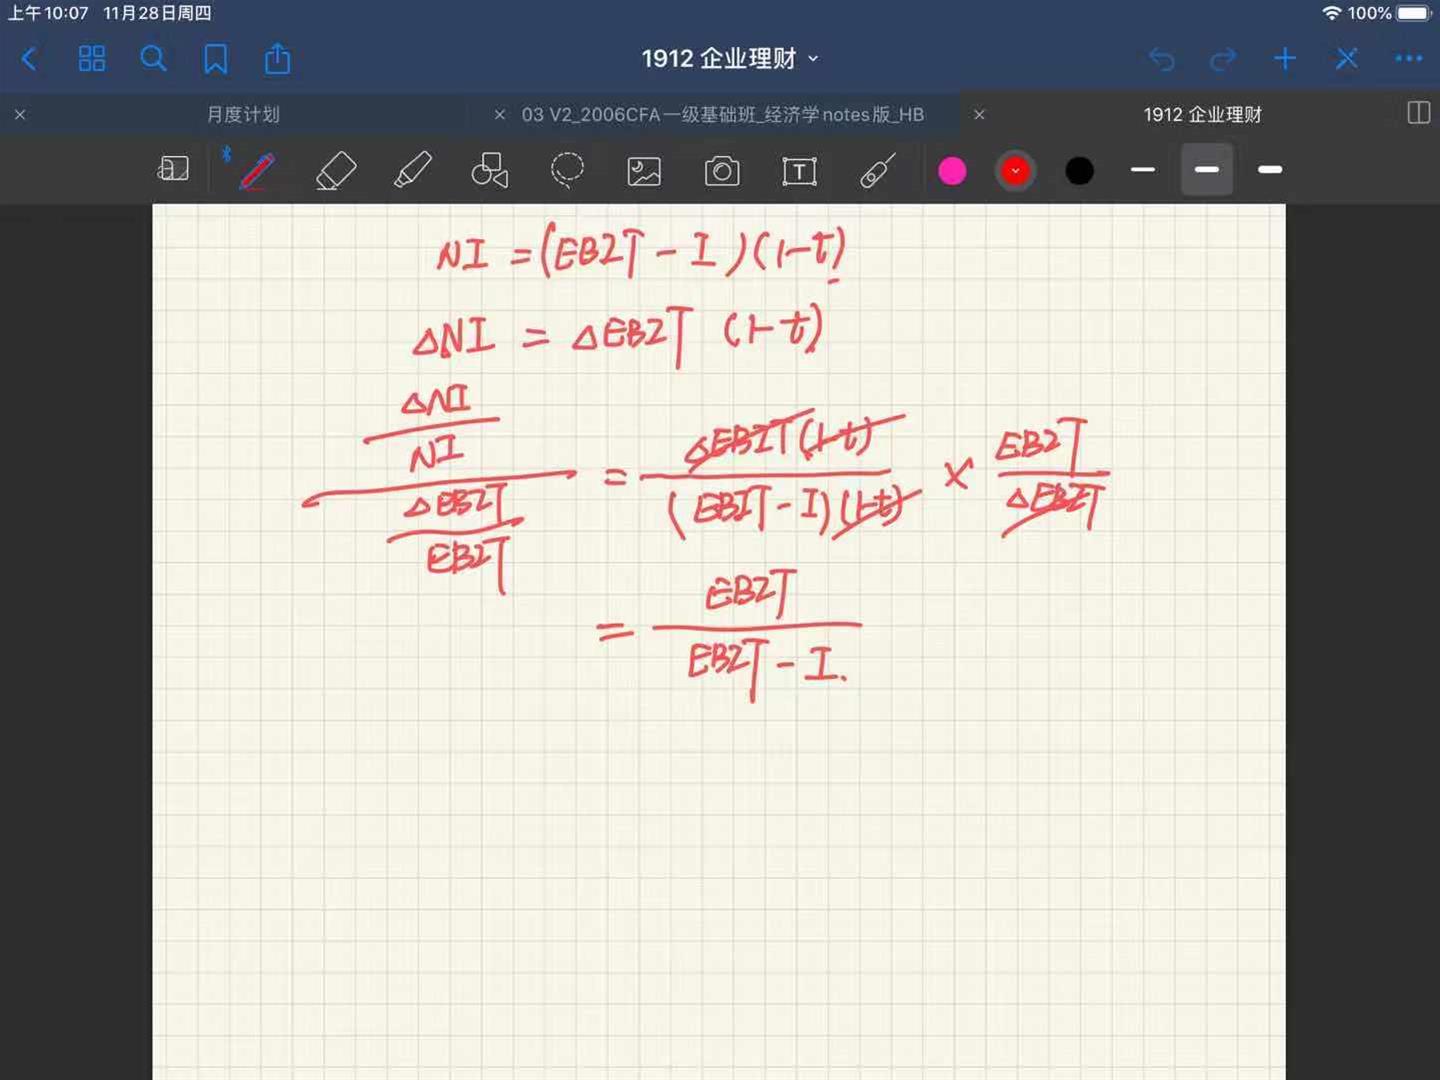 上午10:07 11月28日周四 100%
1912 企业理财
月度计划 03 V2_2006CFA一级基础班_经济学notes版_HB 1912 企业理财
T
NI = (EBIT - I)(1-t)
ΔNI = ΔEBIT (1-t)
ΔNI
NI
ΔEBIT
EBIT
= ΔEBIT(1-t) / (EBIT - I)(1-t) × EBIT / ΔEBIT
= EBIT / EBIT - I.